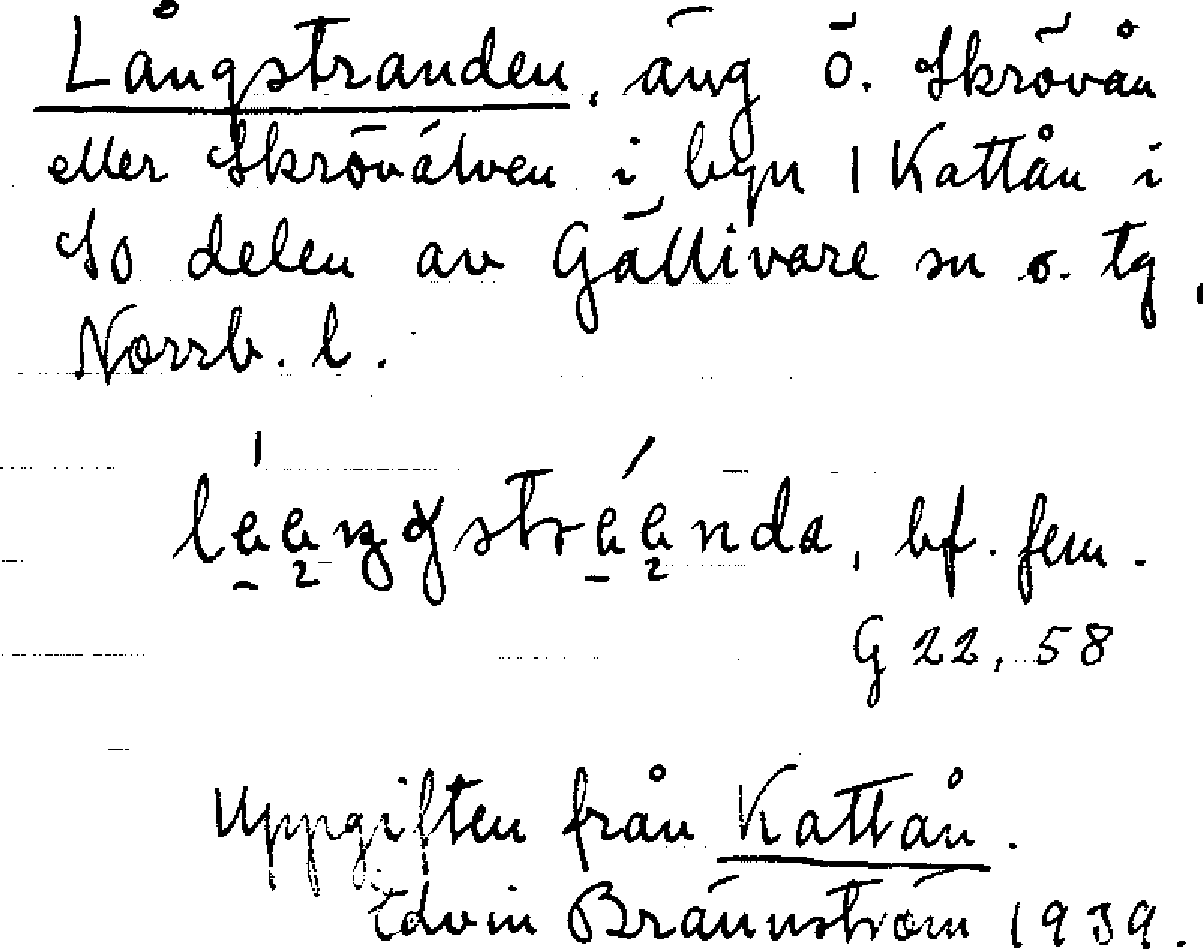 Långstranden, äng ö. Skrövån
eller Skröválven i byn 1 Kattån i
SO delen av Gällivare sn o. tg,
Norrb. l.
bf. fem.
G 22, 58
Uppgiften från Kattån.
Edvin Brännström 1939.